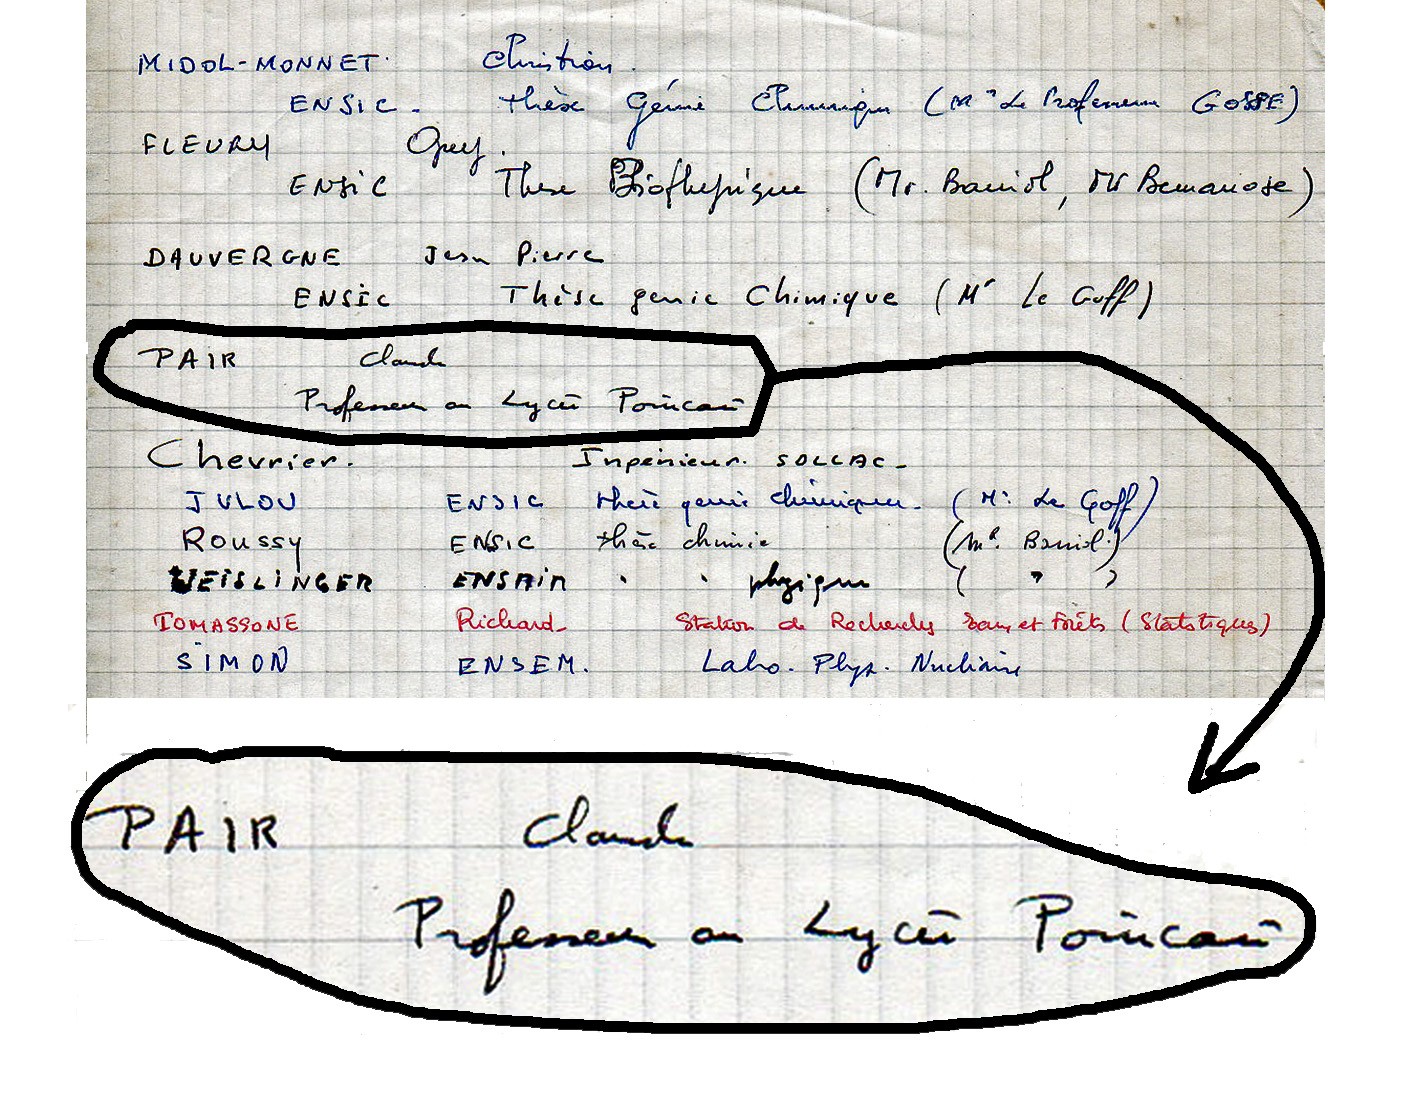 MIDOL-MONNET Christian.
ENSIC. thèse Génie Chimique (Mr Le Professeur GOSSE)
FLEURY Guy.
ENSIC These Biophysique (Mr. Barriol,
DAUVERGNE Jean Pierre
ENSIC Thèse genie Chimique (Mr Le Goff)
PAIR Claude
Professeur au Lycée Poincaré
Chevrier. Ingénieur. SOLLAC-
JULOU ENSIC thèse genie chimique. (Mr Le Goff)
ROUSSY ENSIC thèse chimie (Mr. Barriol.)
WEISLINGER ENSAIA " " physique ( " )
TOMASSONE Richard_ Station de Recherches Eaux et Forêts (Statistiques)
SIMON ENSEM. Labo. Phys. Nucléaire
PAIR Claude
Professeur au Lycée Poincaré